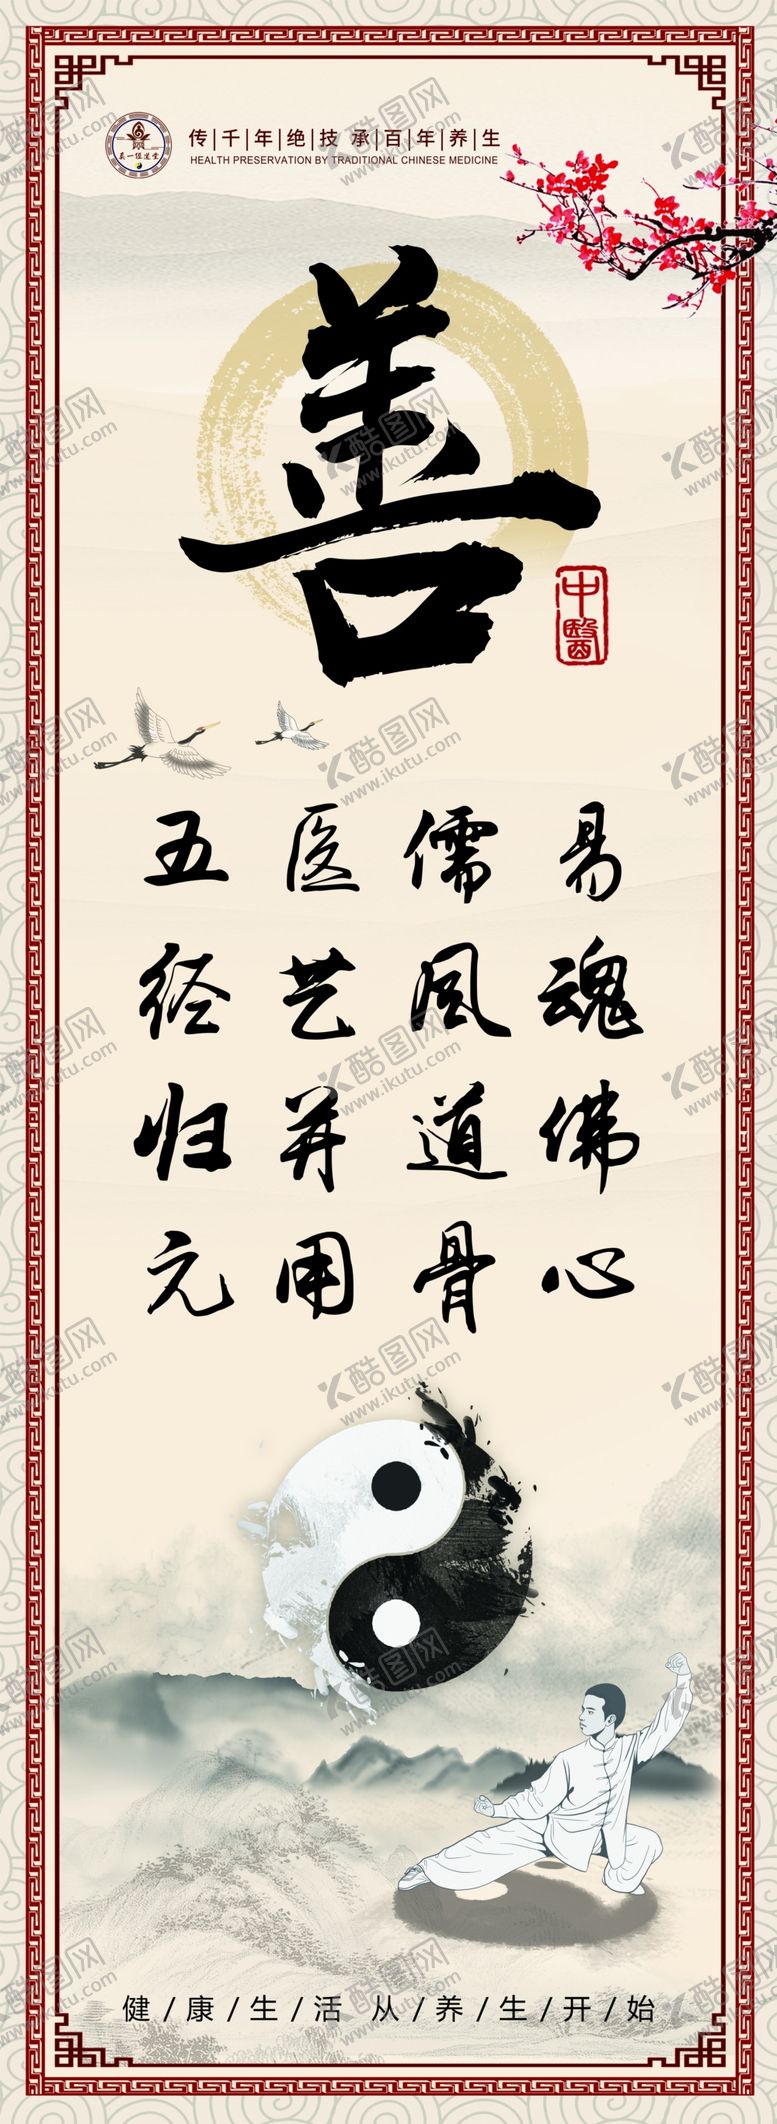 真一经道堂
传千年绝技 承百年养生
HEALTH PRESERVATION BY TRADITIONAL CHINESE MEDICINE
善
中醫
易魂佛心
儒风道骨
医艺并用
五经归元
健/康/生/活 从/养/生/开/始
酷图网
www.ikutu.com